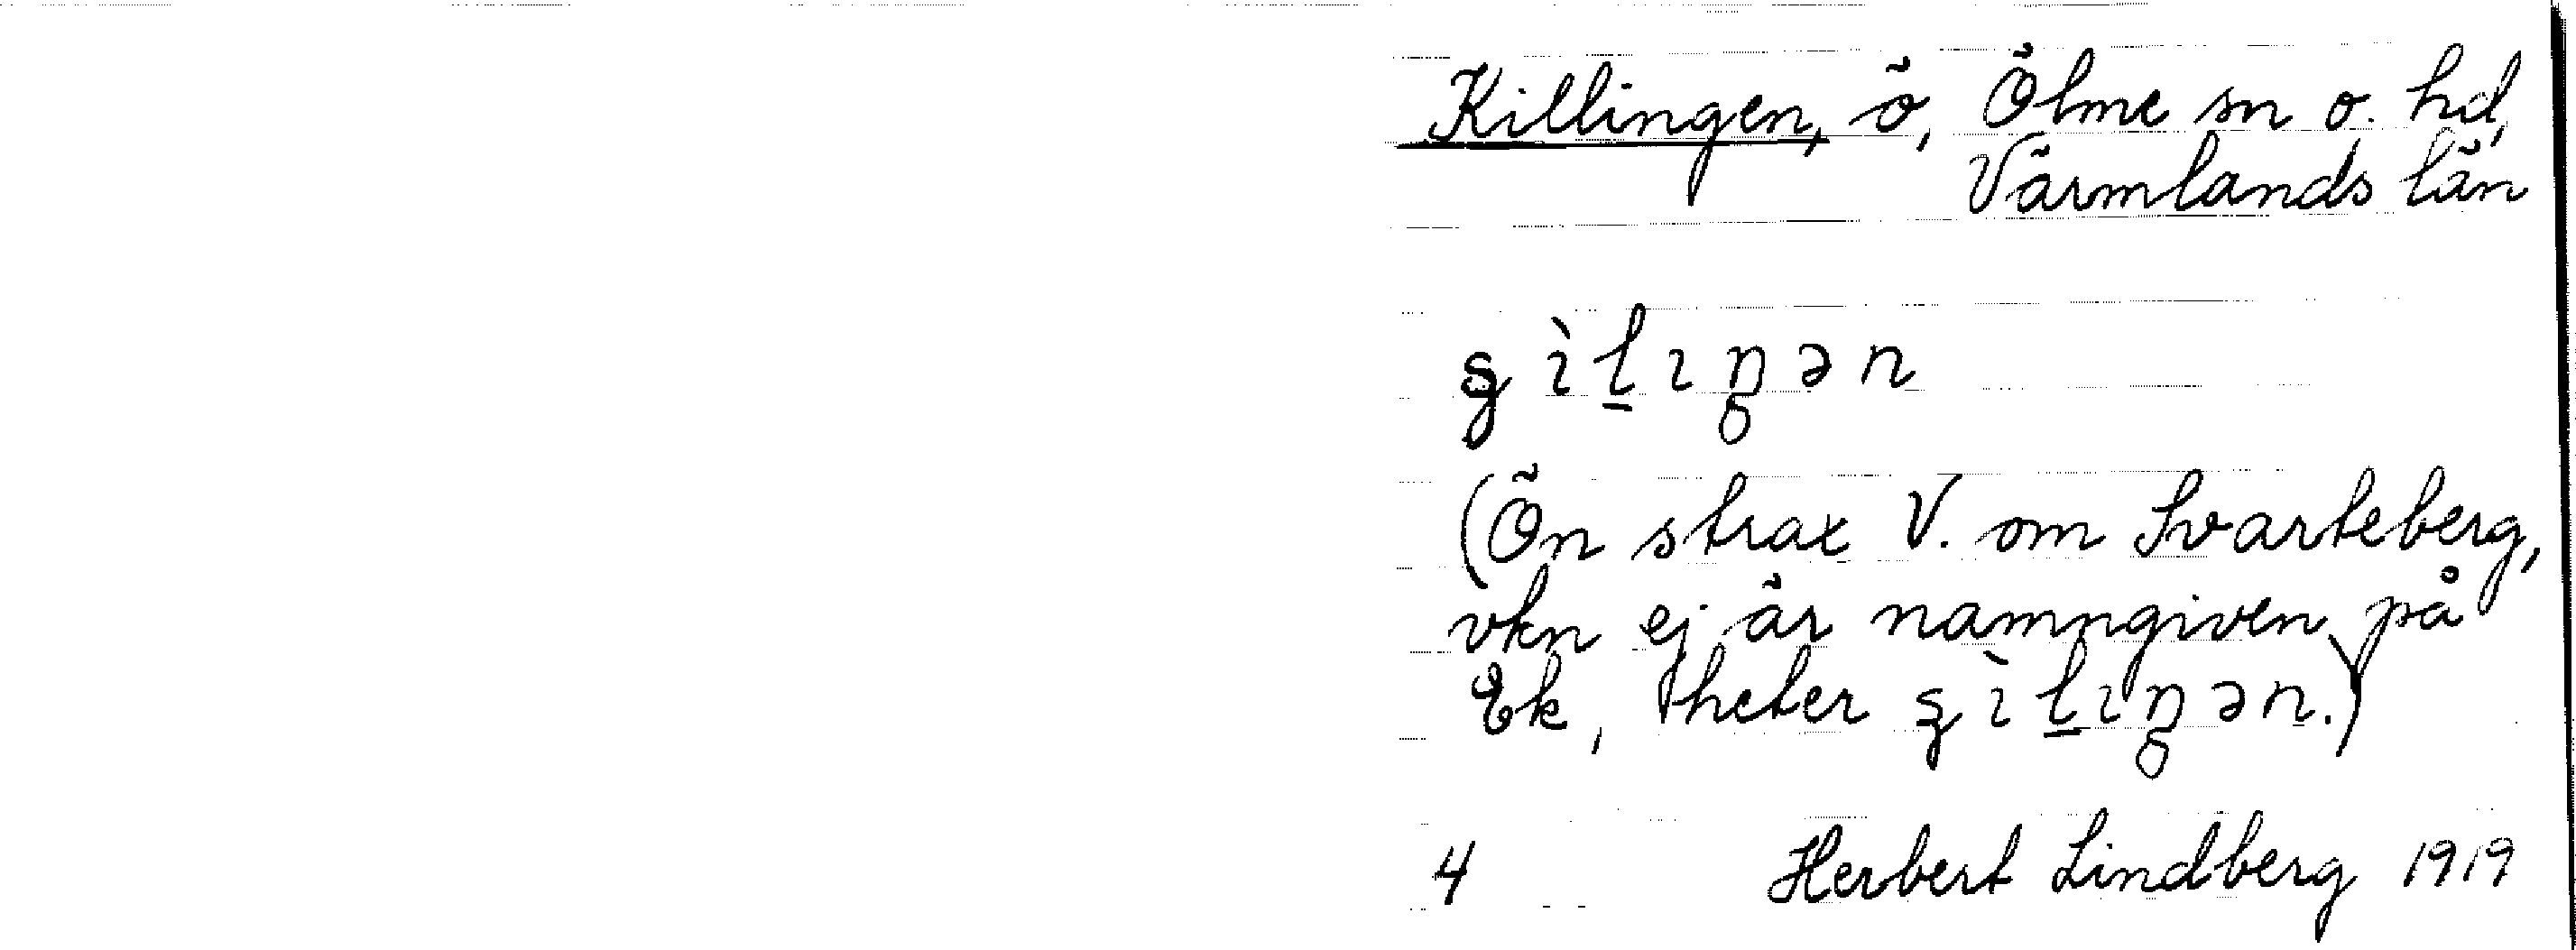 Killingen, ö, Ölme sn o. hd,
Värmlands län
ʂ ì l̠ ı ŋ ə n
(Ön strax V. om Svarteberg,
vkn ej är namngiven på
Ek, heter ʂ ì l̠ ı ŋ ə n.)
4 Herbert Lindberg 1919